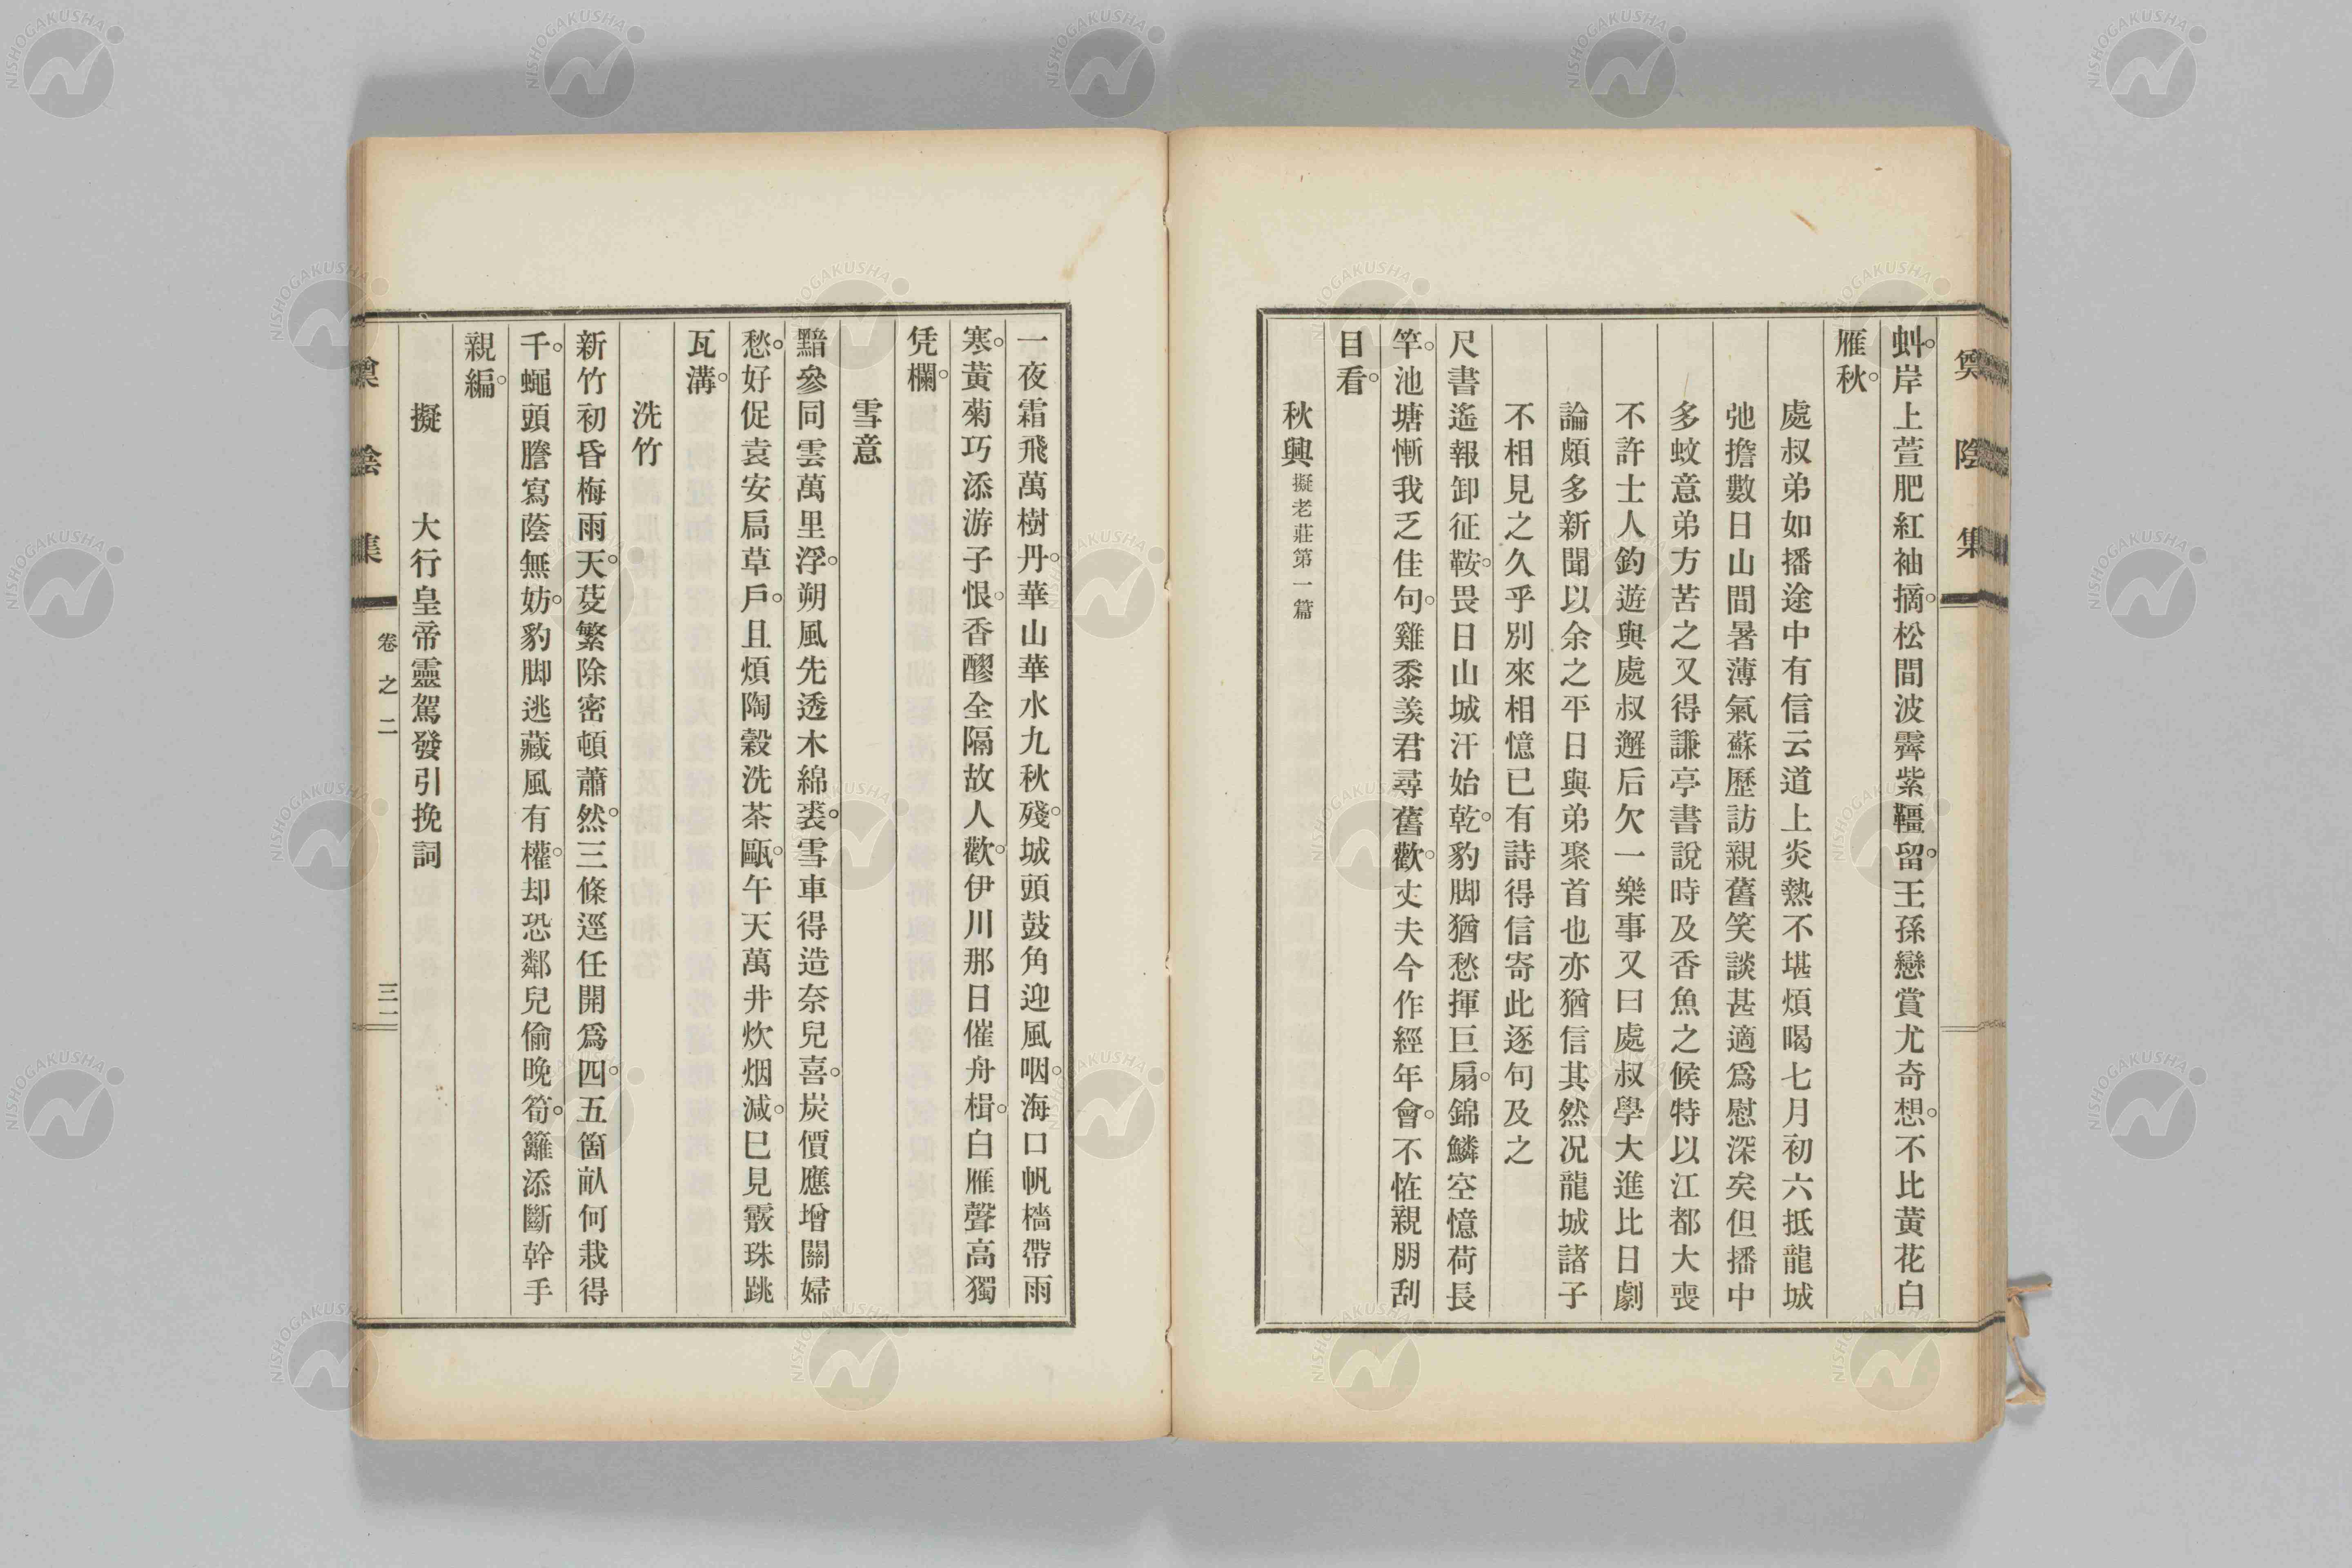 蚪岸上萱肥紅袖摘松間波霽紫韁留王孫戀賞尤奇想不比黃花白
雁秋
處叔弟如播途中有信云道上炎熱不堪煩喝七月初六抵龍城
弛擔數日山間暑薄氣蘇歷訪親舊笑談甚適爲慰深矣但播中
多蚊意弟方苦之又得謙亭書說時及香魚之候特以江都大喪
不許士人釣遊與處叔邂后欠一樂事又曰處叔學大進比日劇
論頗多新聞以余之平日與弟聚首也亦猶信其然况龍城諸子
不相見之久乎別來相憶已有詩得信寄此逐句及之
尺書遙報卸征鞍畏日山城汗始乾豹脚猶愁揮巨扇錦鱗空憶荷長
竿池塘慚我乏佳句雞黍羨君尋舊歡丈夫今作經年會不恠親朋刮
目看
秋興擬老莊第一篇
一夜霜飛萬樹丹華山華水九秋殘城頭鼓角迎風咽海口帆檣帶雨
寒黃菊巧添游子恨香醪全隔故人歡伊川那日催舟楫白雁聲高獨
凭欄
雪意
黯參同雲萬里浮朔風先透木綿裘雪車得造奈兒喜炭價應增關婦
愁好促袁安扃草戶且煩陶穀洗茶甌午天萬井炊烟減巳見霰珠跳
瓦溝
洗竹
新竹初昏梅雨天芟繁除密頓蕭然三條逕任開爲四五箇畝何栽得
千蠅頭謄寫蔭無妨豹脚逃藏風有權却恐鄰兒偷晚筍籬添斷幹手
親編
擬　大行皇帝靈駕發引挽詞
陰集
卷之二
三一
NISHOGAKUSHA